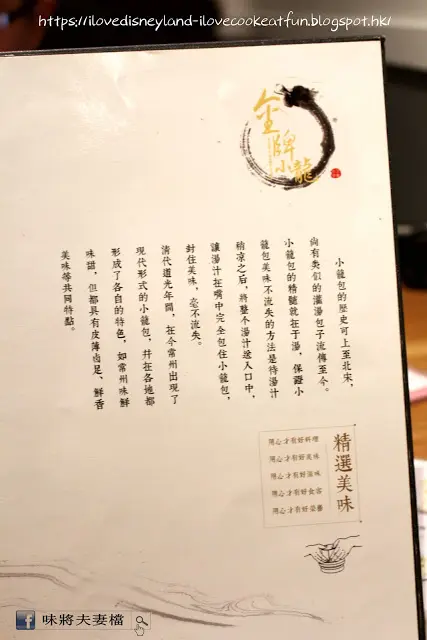 https://ilovedisneyland-ilovecookeatfun.blogspot.hk/
金牌小龍
小龍包的歷史可上至北宋，
尚有类似的灌湯包子流傳至今。
小龍包的精髓就在于湯，保證小
龍包美味不流失的方法是待湯汁
稍凉之后，將整个湯汁送入口中，
讓湯汁在嘴中完全包住小龍包，
封住美味，毫不流失。
清代道光年間，在今常州出現了
現代形式的小龍包，幷在各地都
形成了各自的特色，如常州味鮮
味甜，但都具有皮薄卤足、鮮香
美味等共同特點。
精選美味
用心才有好料理
用心才有好美味
用心才有好滋味
用心才有好食店
用心才有好榮譽
味將夫妻檔